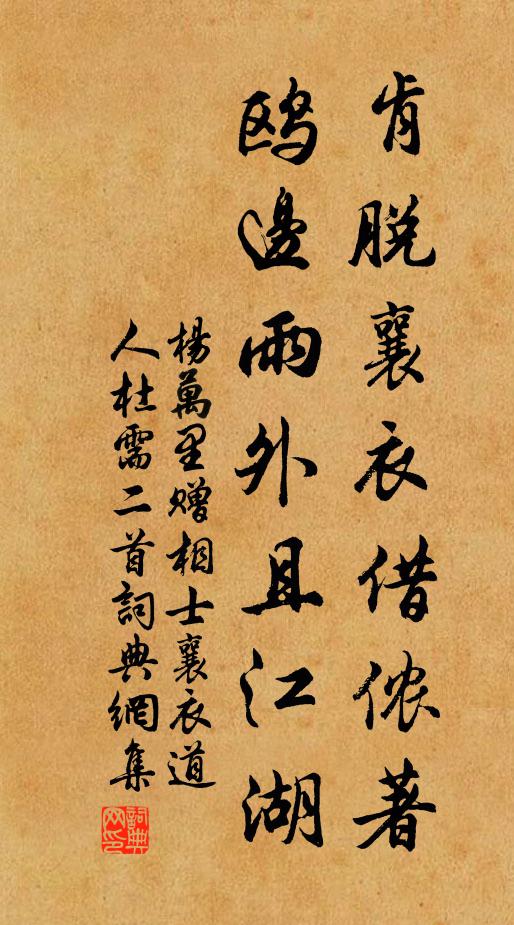 肯脱襄衣借侬著
鸥邊雨外且江湖
楊萬里赠相士襄衣道
人杜需二首詞典網集
詞典网印